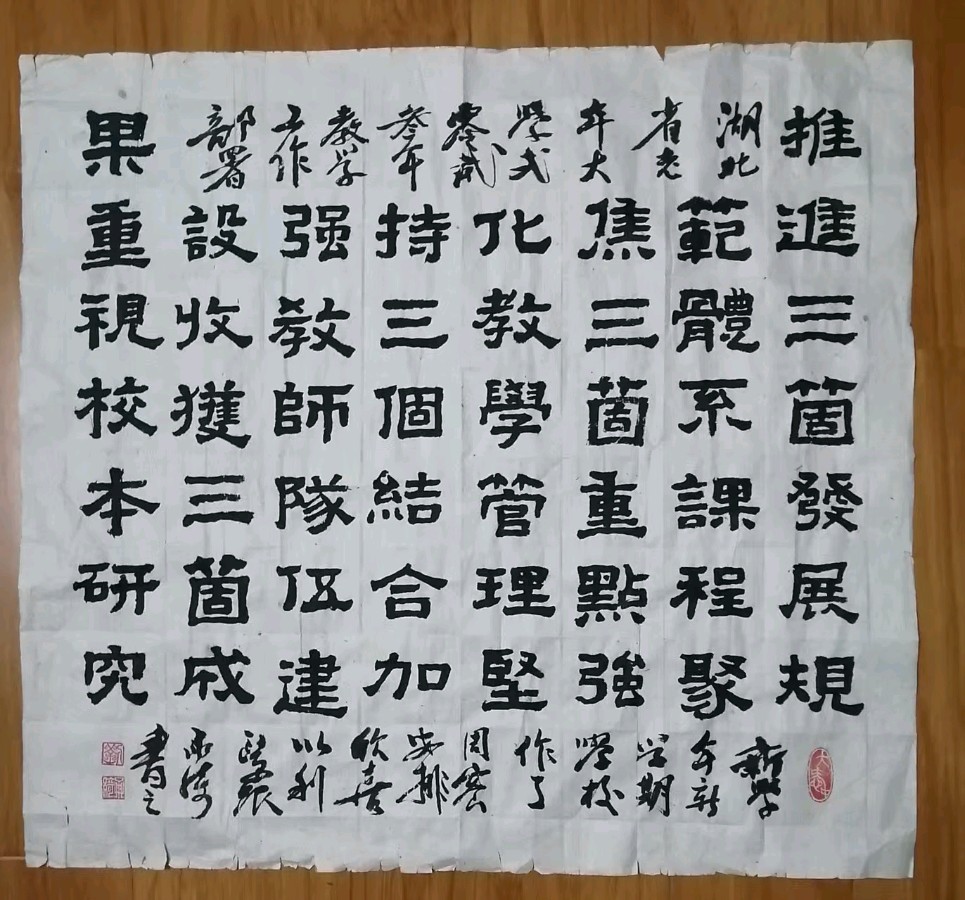 推進三箇發展規
範體系課程聚
焦三箇重點強
化教學管理堅
持三個結合加
强教師隊伍建
設收獲三箇成
果重視校本研究
湖北
省老
年大
學弍
零貳
叁年
教学
工作
部署
新學
年新
学期
學校
作了
周密
安排
欣喜
以利
書之